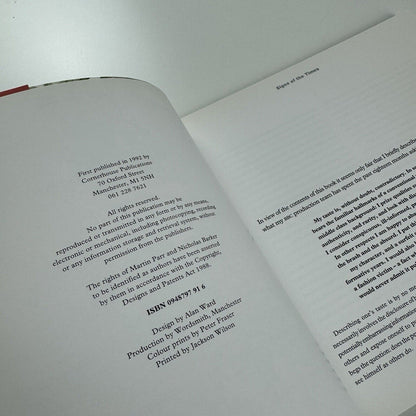 First published in 1992 by
Cornerhouse Publications
70 Oxford Street
Manchester, M1 5NH
061 228 7621
All rights reserved.
No part of this publication may be
reproduced or transmitted in any form or by any means,
electronic or mechanical, including photocopying, recording
or any information storage and retrieval system, without
permission from the publishers.
The rights of Martin Parr and Nicholas Barker
to be identified as authors have been asserted
by them in accordance with the Copyright,
Designs and Patents Act 1988.
ISBN 0948797 91 6
Design by Alan Ward
Production by Wordsmith, Manchester
Colour prints by Peter Fraser
Printed by Jackson Wilson
Signs of the Times
In view of the contents of this book it seems only fair that I briefly describe
what my BBC production team has spent the past eighteen months
My taste is, without doubt, contradictory. In
bears the familiar hallmarks of a conventional,
class background. I prize
authenticity, and parity, and look with
I consider pretentious, ill-informed,
In other respects, however, I'm
the brash and the
on my should. I
man, when a
formative years, I
a fashion victim,
would never admit
Describing one's taste is by no means
necessarily involves the disclosure of
potentially embarrassing information
others and expose oneself to
begs the question: does the
see himself as others do.